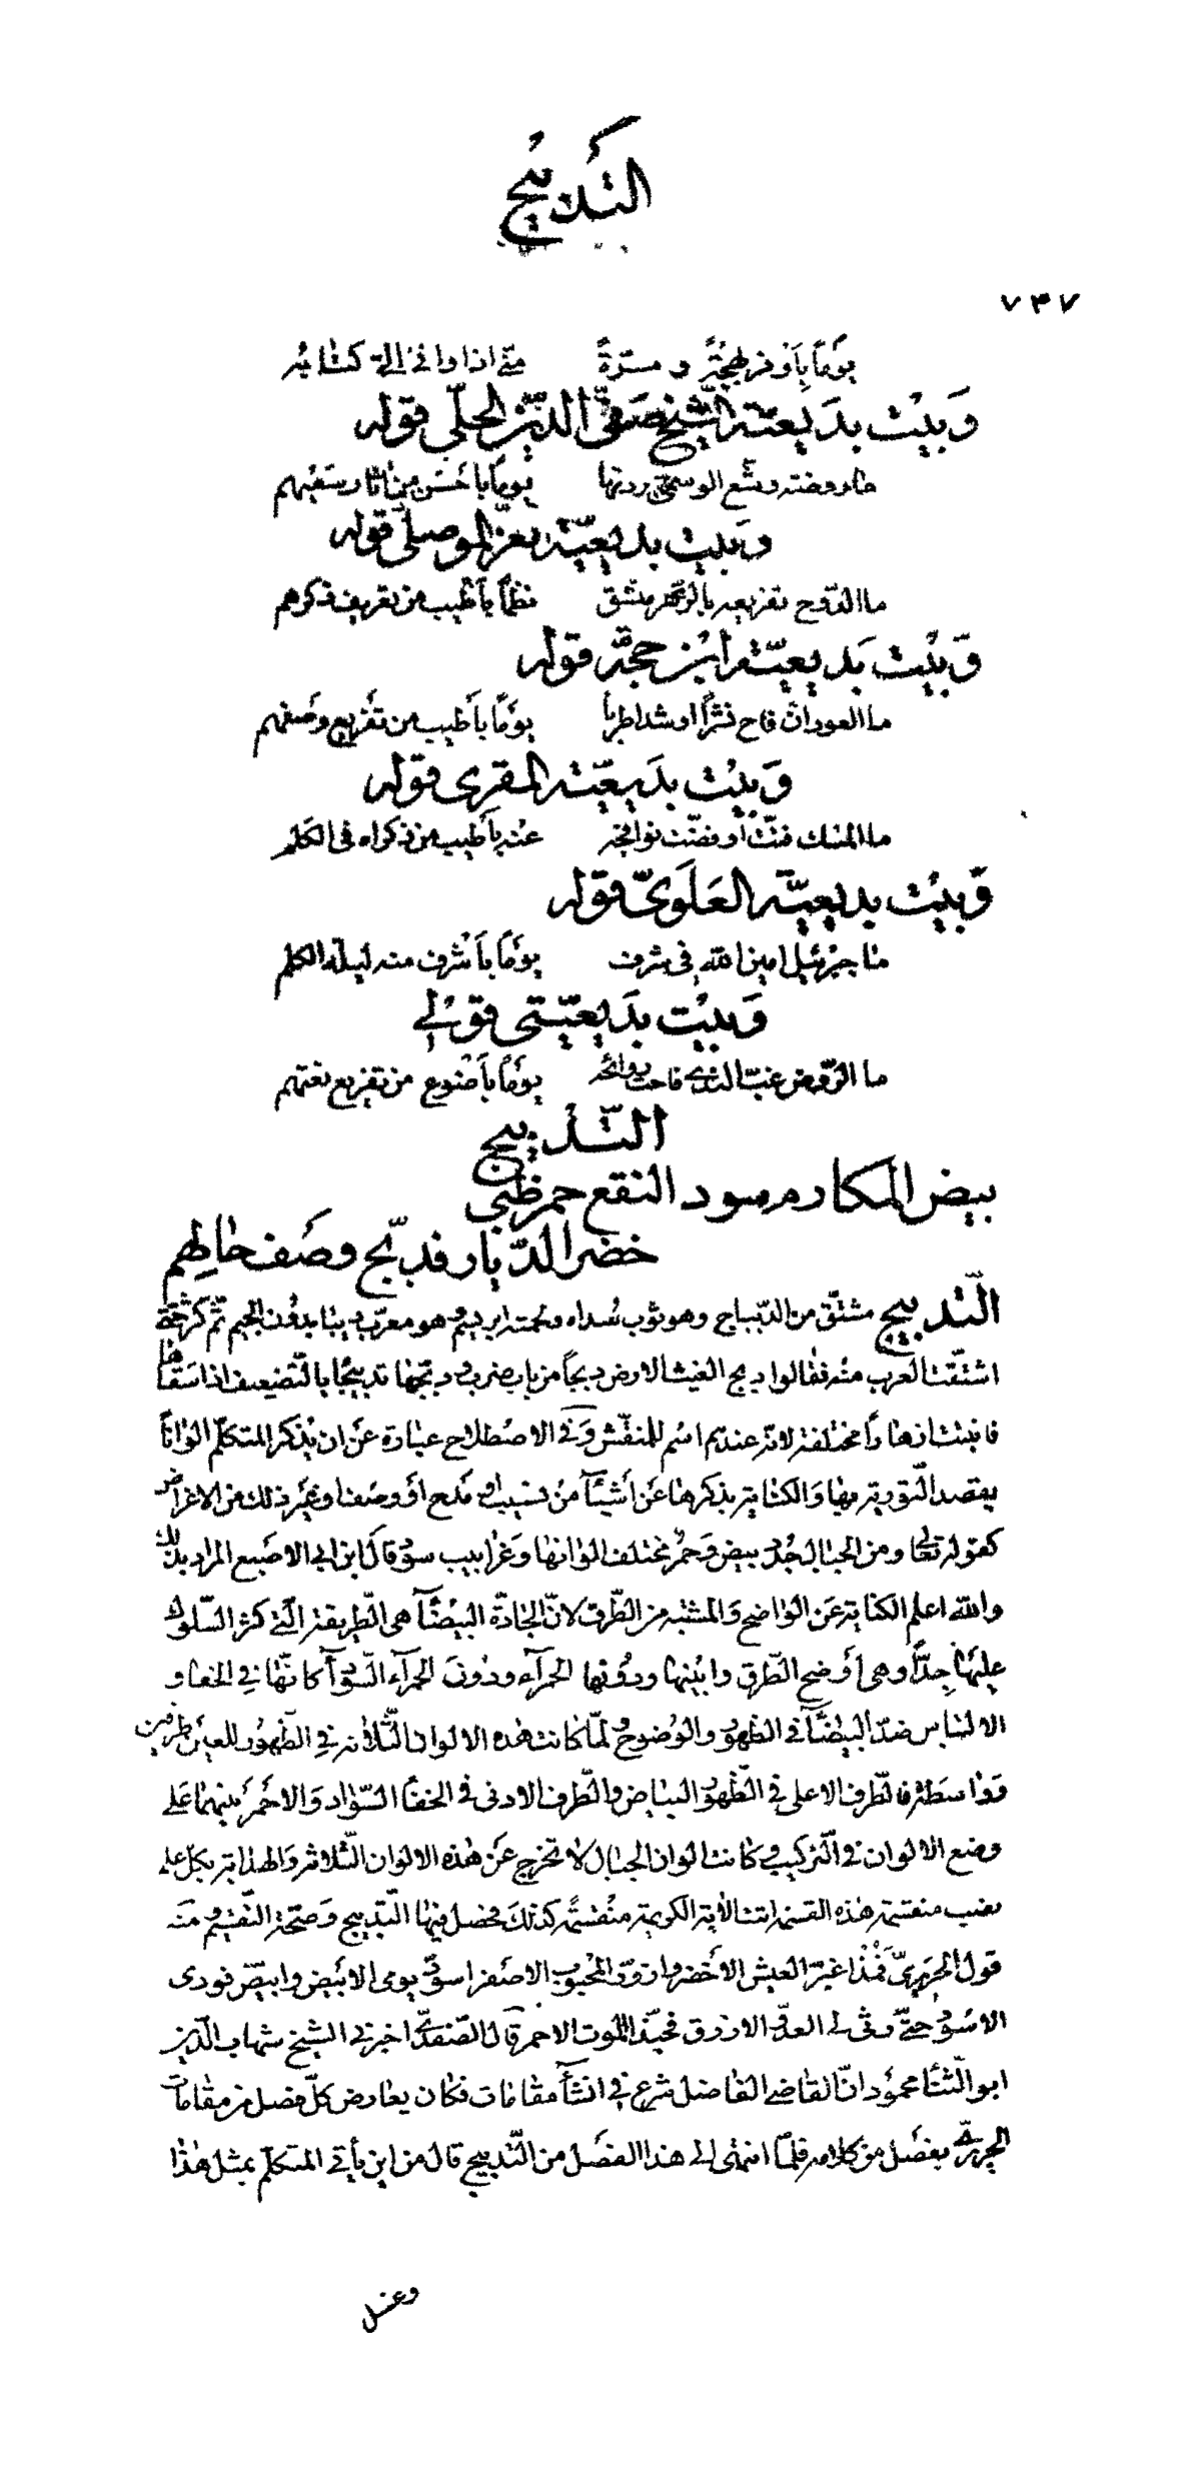 التدبيج
٧٣٧
يوماً بأوفر بهجةً ومسرّةً منّي اذا وافى إليّ كتابه
وبيت بديعيّته الشيخ صفيّ الدين الحلّي قوله
ما روضة وشّع الوسميّ بردتها يوماً بأحسن من آثار سعيهم
وبيت بديعيّة عزّ الموصلي قوله
ما الدوح تفريعه بالزهر متّسق نظماً بأطيب من تعريف ذكرهم
وبيت بديعيّة ابن حجّة قوله
ما العود ان فاح نشراً او شدا طرباً يوماً بأطيب من تفريع وصفهم
وبيت بديعيّة المقري قوله
ما المسك فتّت او فضّت نوافجه عنه بأطيب من ذكراه في الكلم
وبيت بديعيّة العلويّ قوله
ما جبرئيل امين الله في شرف يوماً بأشرف منه ليلة الكلم
وبيت بديعيّتي قولي
ما الروض غبّ الندى فاحت روائحه يوماً بأضوع من تفريع نعتهم
التّدبيج
بيض المكارم سود النقع حمر ظبى
خضر الدّيار فدبّج وصف حالهم
التّدبيج مشتّق من الدّيباج وهو ثوب سداه ولحمته ابريسم وهو معرّب ديبا بدون الجيم ثمّ كثر حتّى
اشتّقت العرب منه فقالوا دبج الغيث الارض دبجاً من باب ضرب ودبّجها تدبيجا بالتّضعيف اذا سقاها
فانبتت ازهاراً مختلفة لانّه عندهم اسم للمنقّش وفي الاصطلاح عبارة عن ان يذكر المتكلّم الواناً
يقصد التّورية بها والكناية بذكرها عن أشيآء من نسيب او مدح أو وصف او غير ذلك من الاغراض
كقوله تعالى ومن الجبال جدد بيض وحمر مختلف الوانها وغرابيب سود قال ابن ابي الاصبع المراد بذلك
والله اعلم الكناية عن الواضح والمشتبه من الطّرق لانّ الجادّة البيضآء هي الطّريقة الّتي كثر السّلوك
عليها جدّاً وهي أوضح الطّرق وابينها ودونها الحمرآء ودون الحمرآء السّودآء كانّها في الخفاء و
الالتباس ضدّ البيضآء في الظهور والوضوح ولمّا كانت هذه الالوان الثّلاثة في الظّهور للعين طرفين
وواسطة فالطّرف الاعلى في الظّهور البياض والطّرف الادنى في الخفاء السّواد والاحمر بينهما على
وضع الالوان في التّركيب وكانت الوان الجبال لا تخرج عن هذه الالوان الثّلاثة والهداية بكلّ علم
نصب منقسمة هذه القسمة اتت الآية الكريمة منقسمة كذلك فحصل فيها التّدبيج وصحّة التّقسيم ومنه
قول الحريريّ فمذ اغبرّ العيش الأخضر وازورّ المحبوب الاصفر اسودّ يومي الابيض وابيضّ فودى
الاسود حتّى رثى لى العدوّ الازرق فحبّذا الموت الاحمر قال الصّفديّ اخبرني الشيخ شهاب الدّين
ابو الثّناء محمود انّ القاضي الفاضل شرع في انشآء مقامات فكان يعارض كلّ فصل من مقامات
الحريري بفصل من كلامه فلمّا انتهى الى هذا الفصل من التّدبيج قال من اين يأتي المتكلّم بمثل هذا